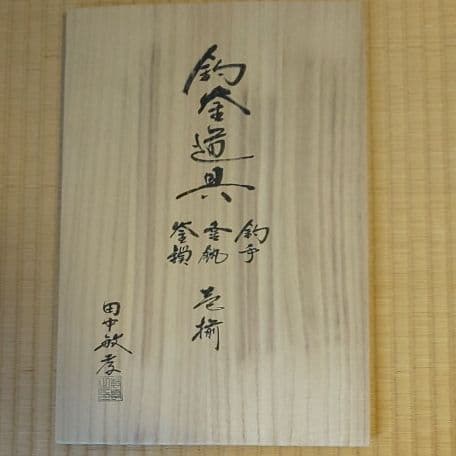 釣釜道具
釣手
釜釻
釜鎖
壱揃
田中敏彦